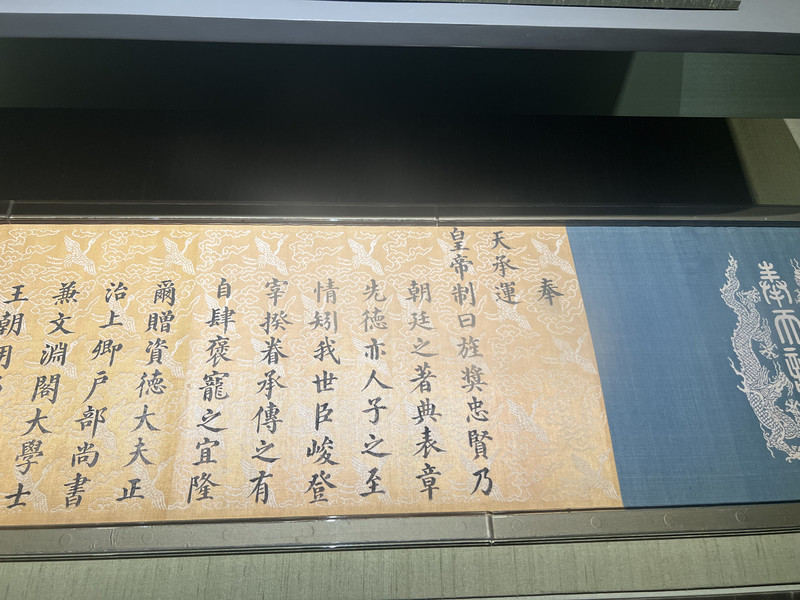 奉天
奉
天承運
皇帝制曰旌奬忠賢乃
朝廷之著典表章
先德亦人子之至
情矧我世臣峻登
宰揆眷承傳之有
自肆褒寵之宜隆
爾贈資德大夫正
治上卿戶部尚書
兼文淵閣大學士
王朝用